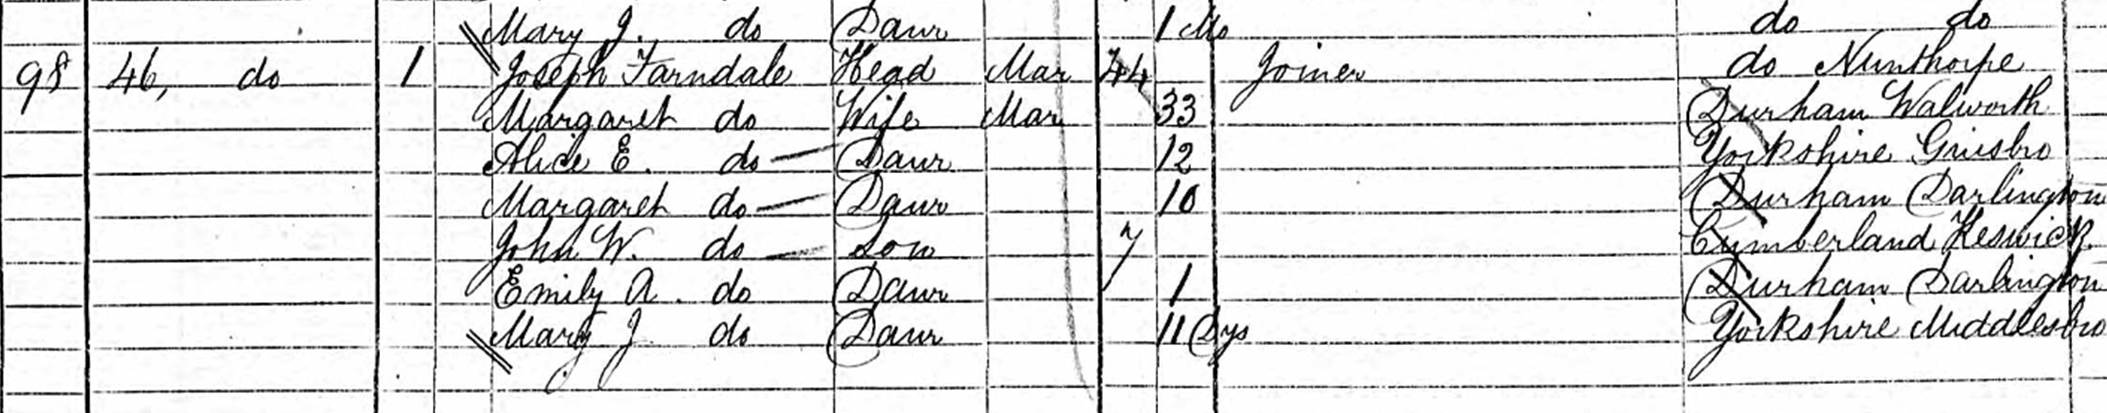 Mary J. do Daur 1 Mo do do
98 46, do 1 Joseph Farndale Head Mar 44 Joiner do Nunthorpe
Margaret do Wife Mar 33 Durham Walworth
Alice E. do Daur 12 Yorkshire Guisbro
Margaret do Daur 10 Durham Darlington
John W. do Son 7 Cumberland Keswick
Emily A. do Daur 1 Durham Darlington
Mary J do Daur 11 Dys Yorkshire Middlesbro